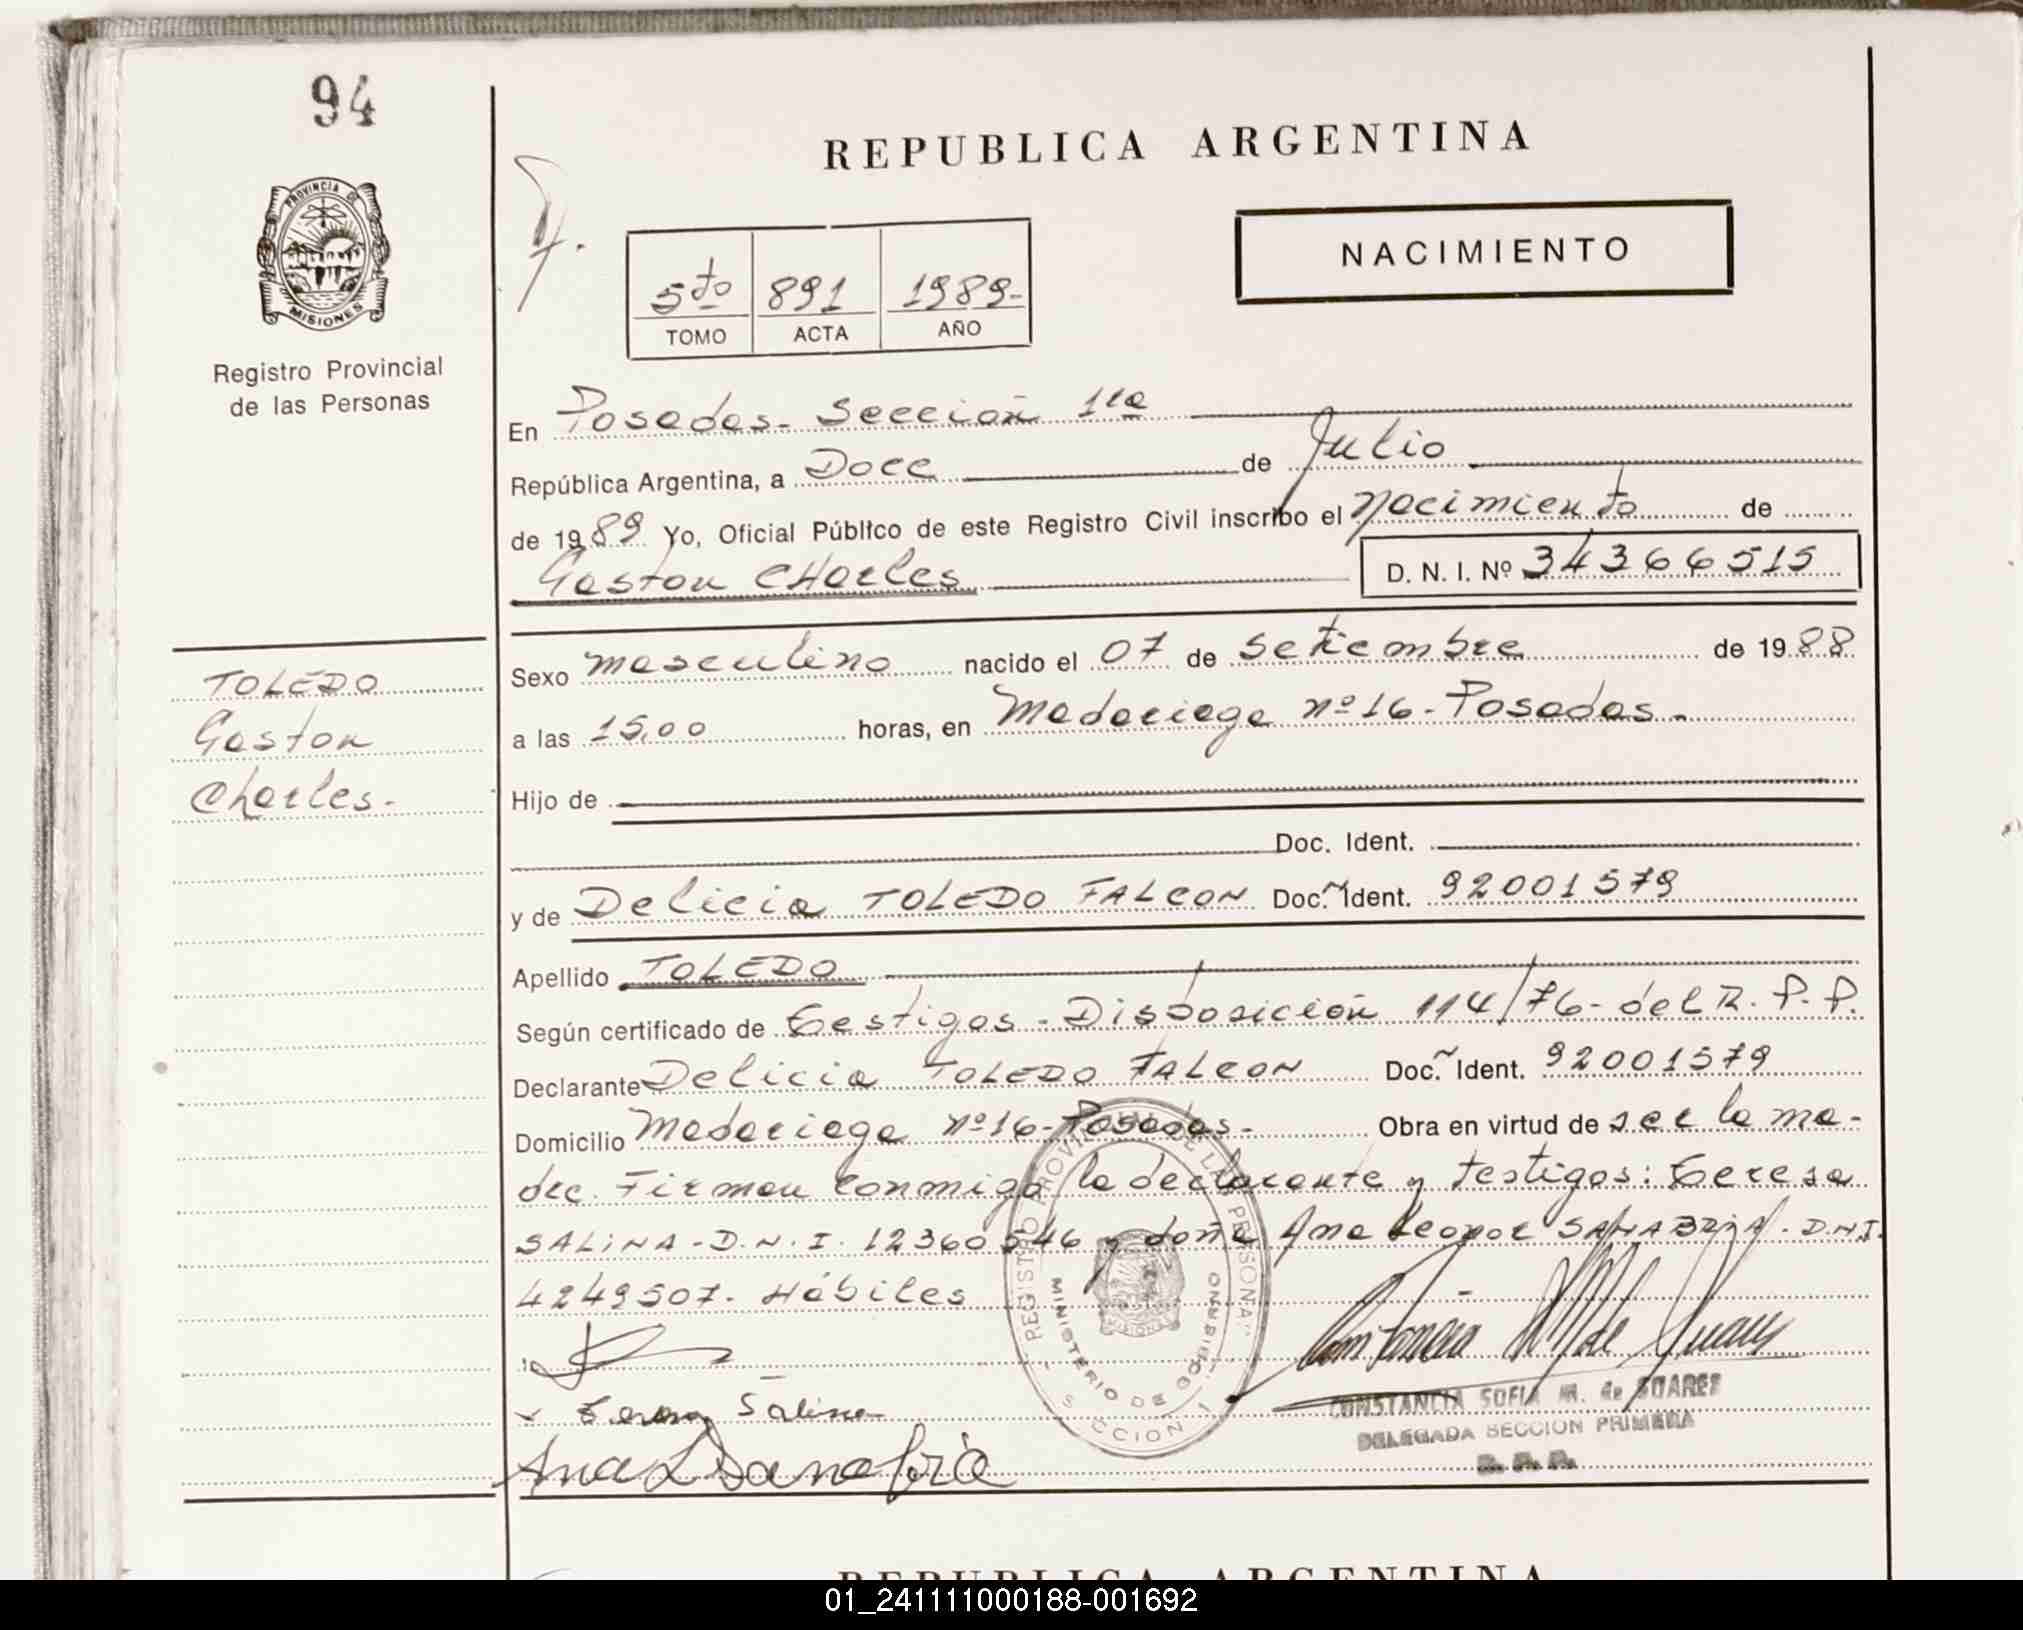 94
REPUBLICA ARGENTINA
NACIMIENTO
PROVINCIA DE
MISIONES
5to 891 1989-
TOMO ACTA AÑO
Registro Provincial
de las Personas
En Posadas- Sección 1ra
República Argentina, a Doce de Julio
de 1989 Yo, Oficial Público de este Registro Civil inscribo el Nacimiento de
Gaston CHarles D. N. I. Nº 34366515
Sexo masculino nacido el 07 de Setiembre de 1988
TOLEDO
Gaston
Charles.-
a las 15,00 horas, en Madariaga nº 16- Posadas.-
Hijo de
Doc. Ident.
y de Delicia TOLEDO FALCON Doc. Ident. 92001579
Apellido TOLEDO
Según certificado de testigos- Disposición 114/76- del R. P. P.
Declarante Delicia TOLEDO FALCON Doc. Ident. 92001579
Domicilio Madariaga nº 16- Posadas- Obra en virtud de ser la ma-
dre. Firman conmigo la declarante y testigos: Teresa
SALINA-D.N.I. 12360546 y doña Ana Leonor SANABRIA- D.N.I.
4249507. Hábiles
Teresa Salina
Ana L Sanabria
REGISTRO PROVINCIAL DE LAS PERSONAS
MINISTERIO DE GOBIERNO
SECCION 1
MISIONES
CONSTANCIA SOFIA M. de SUAREZ
DELEGADA SECCION PRIMERA
REPUBLICA ARGENTINA
01_241111000188-001692